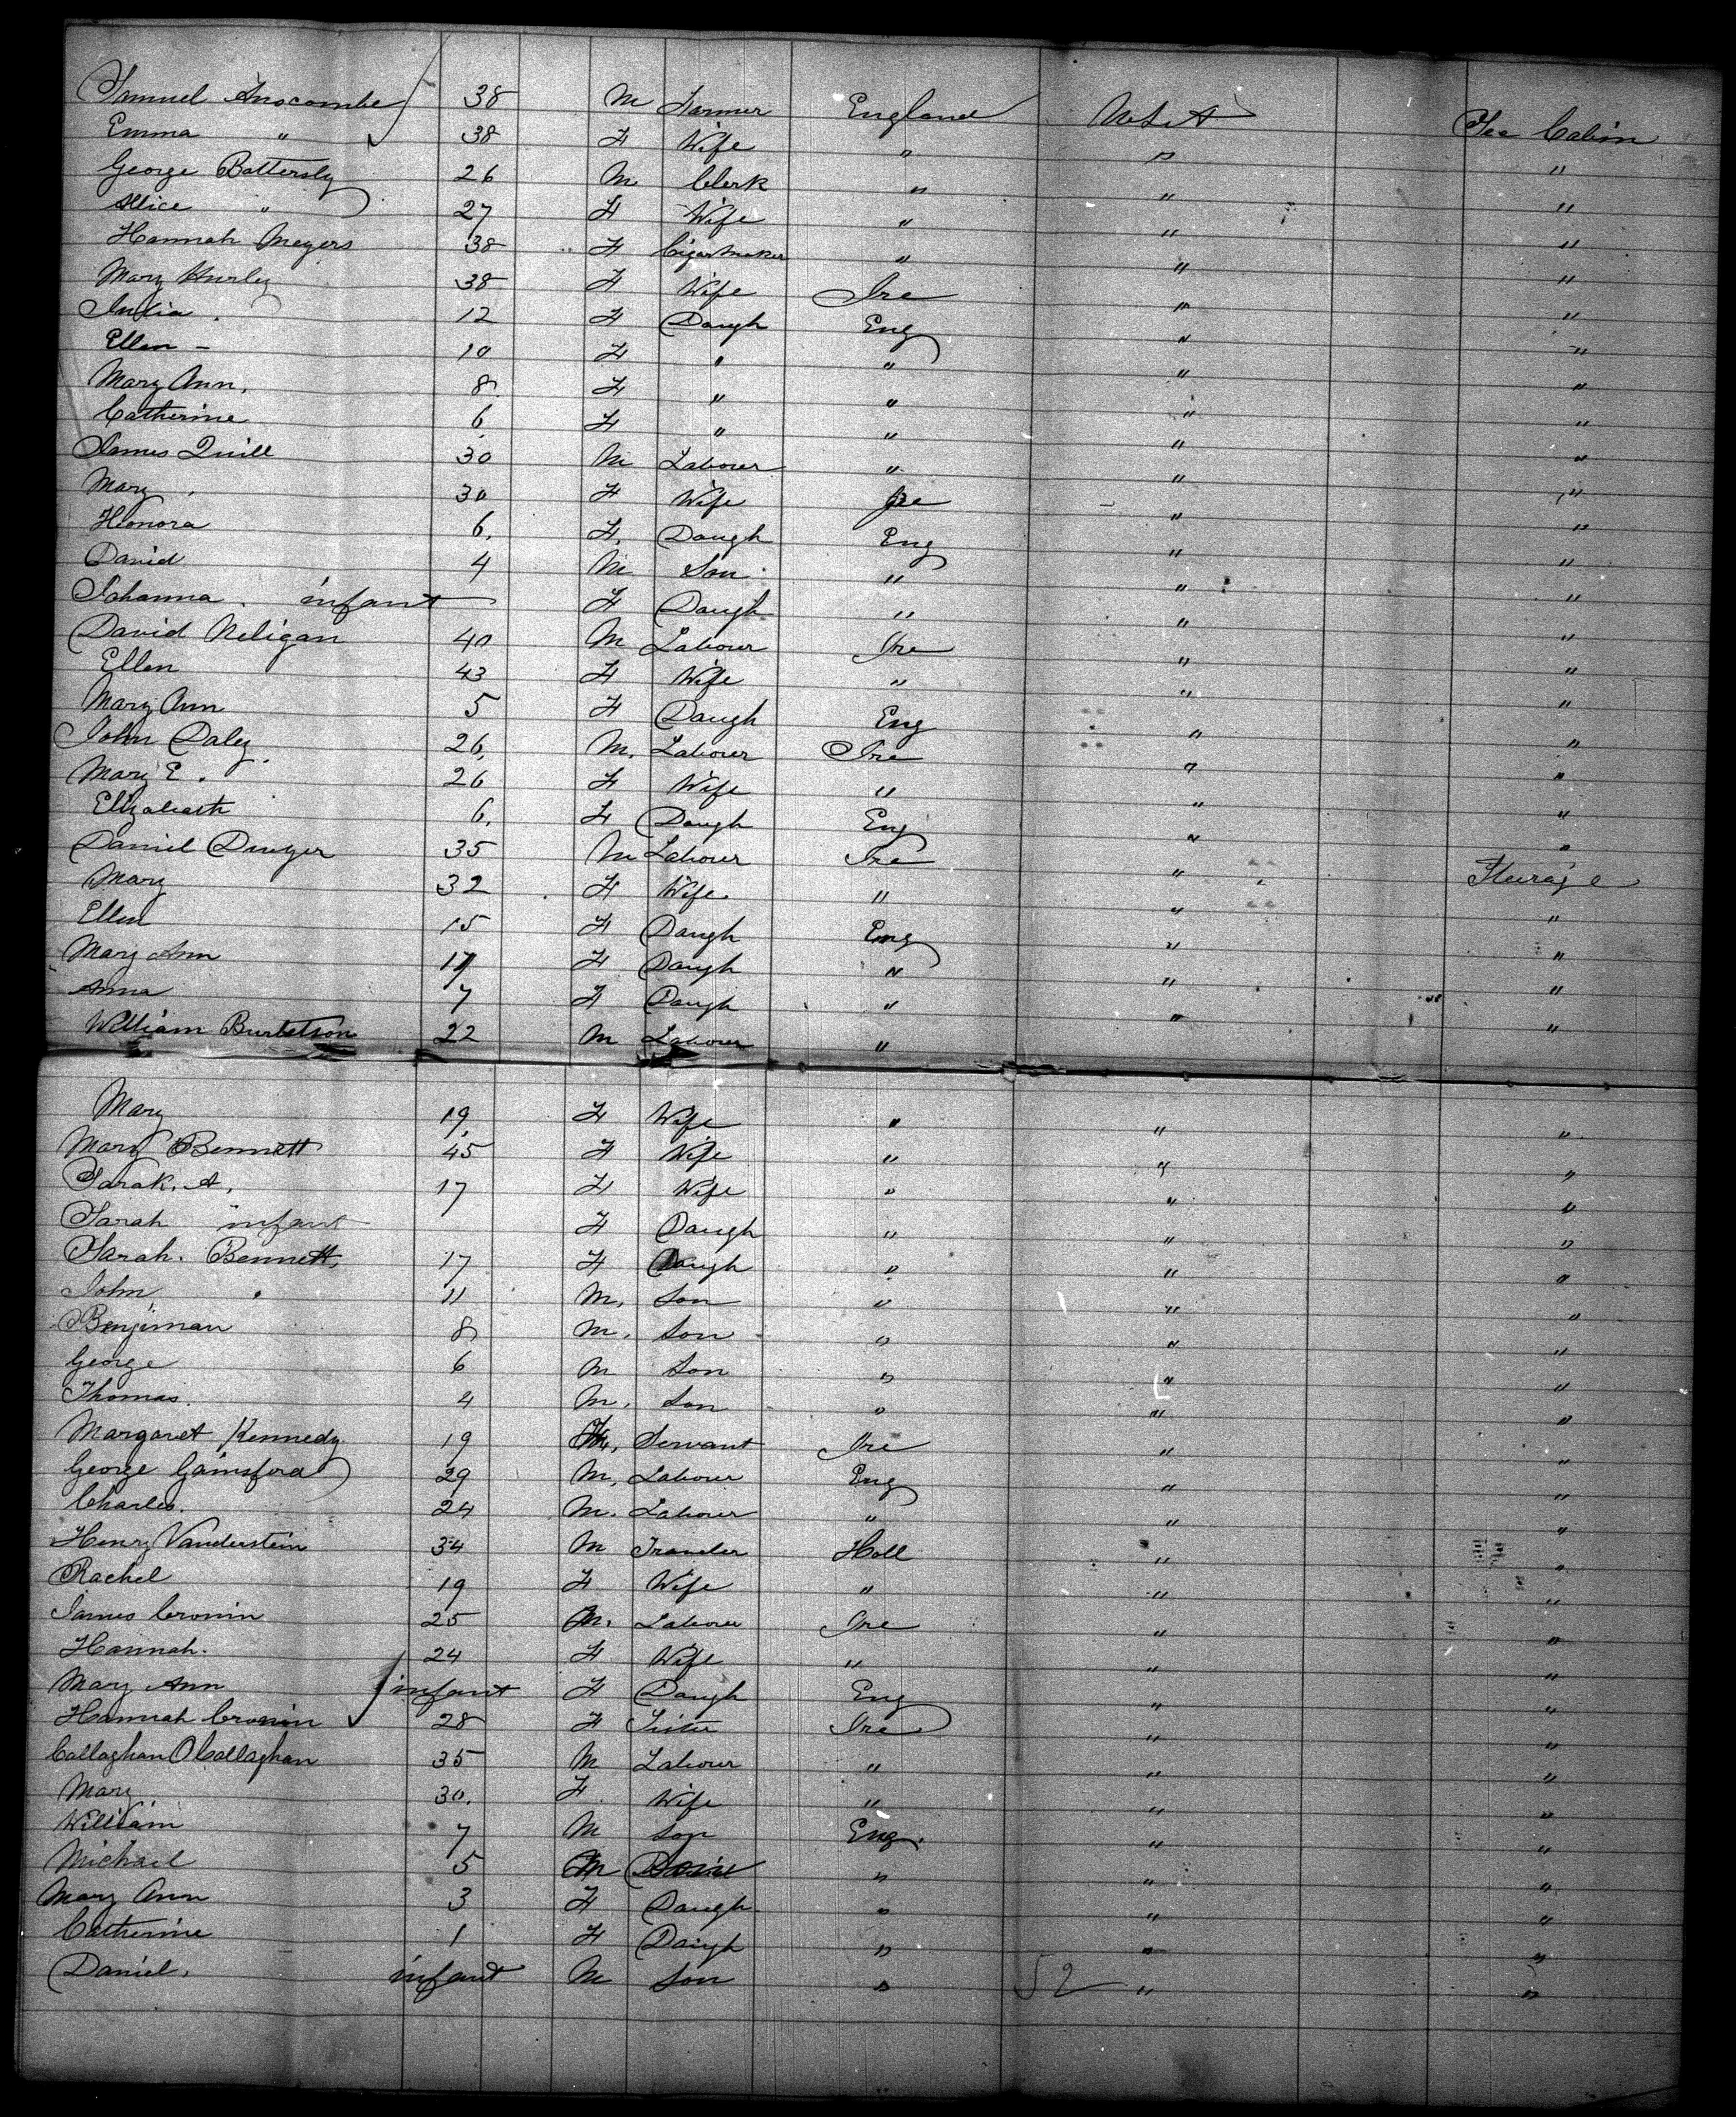 Samuel Anscombe 38 M Farmer England U.S.A Sec Cabin
Emma " 38 F Wife " " "
George Battersby 26 M Clerk " " "
Alice " 27 F Wife " " "
Hannah Meyers 38 F Cigar Maker " " "
Mary Hurley 38 F Wife Ire " "
Julia . 12 F Daugh Eng " "
Ellen - 10 F " " " "
Mary Ann, 8 F " " " "
Catherine 6 F " " " "
James Quill 30 M Labourer " " "
Mary . 30 F Wife Ire " "
Honora 6, F, Daugh Eng " "
David 4 M Son " " "
Johanna . infant F Daugh " " "
David Neligan 40 M Labourer Ire " "
Ellen 43 F Wife " " "
Mary Ann 5 F Daugh Eng " "
John Daley 26, M. Labourer Ire " "
Mary E. 26 F Wife " " "
Elizabeath 6, F Daugh Eng " "
Daniel Dwyer 35 M Labourer Ire " Steerage
Mary 32 F Wife " " "
Ellen 15 F Daugh Eng " "
Mary Ann 17 F Daugh " " "
Anna 7 F Daugh " " "
William 22 M Labourer "
Mary 19, F Wife " " "
Mary Bennett 45 F Wife " " "
Sarah. A, 17 F Wife " " "
Sarah infant F Daugh " " "
Sarah. Bennett, 17 F Daugh " " "
John 11 M, Son " " "
Benjiman 8 M, Son " " "
George 6 M Son " " "
Thomas. 4 M, Son " " "
Margaret Kennedy 19 F, Servant Ire " "
George Gainsford 29 M, Labourer Eng " "
Charles. 24 M. Labourer " " "
Henry Vanderstein 34 M Traveler Holl " "
Rachel 19 F Wife " " "
James Cronin 25 M. Labourer Ire " "
Hannah. 24 F Wife " " "
Mary Ann infant F Daugh Eng " "
Hannah Cronin 28 F Sister Ire " "
Callaghan O Callaghan 35 M Labourer " " "
Mary 30. F Wife " " "
William 7 M Son Eng. " "
Michael 5 M " " "
Mary Ann 3 F Daugh " " "
Catherine 1 F Daugh " " "
Daniel, infant M Son " 52 " "